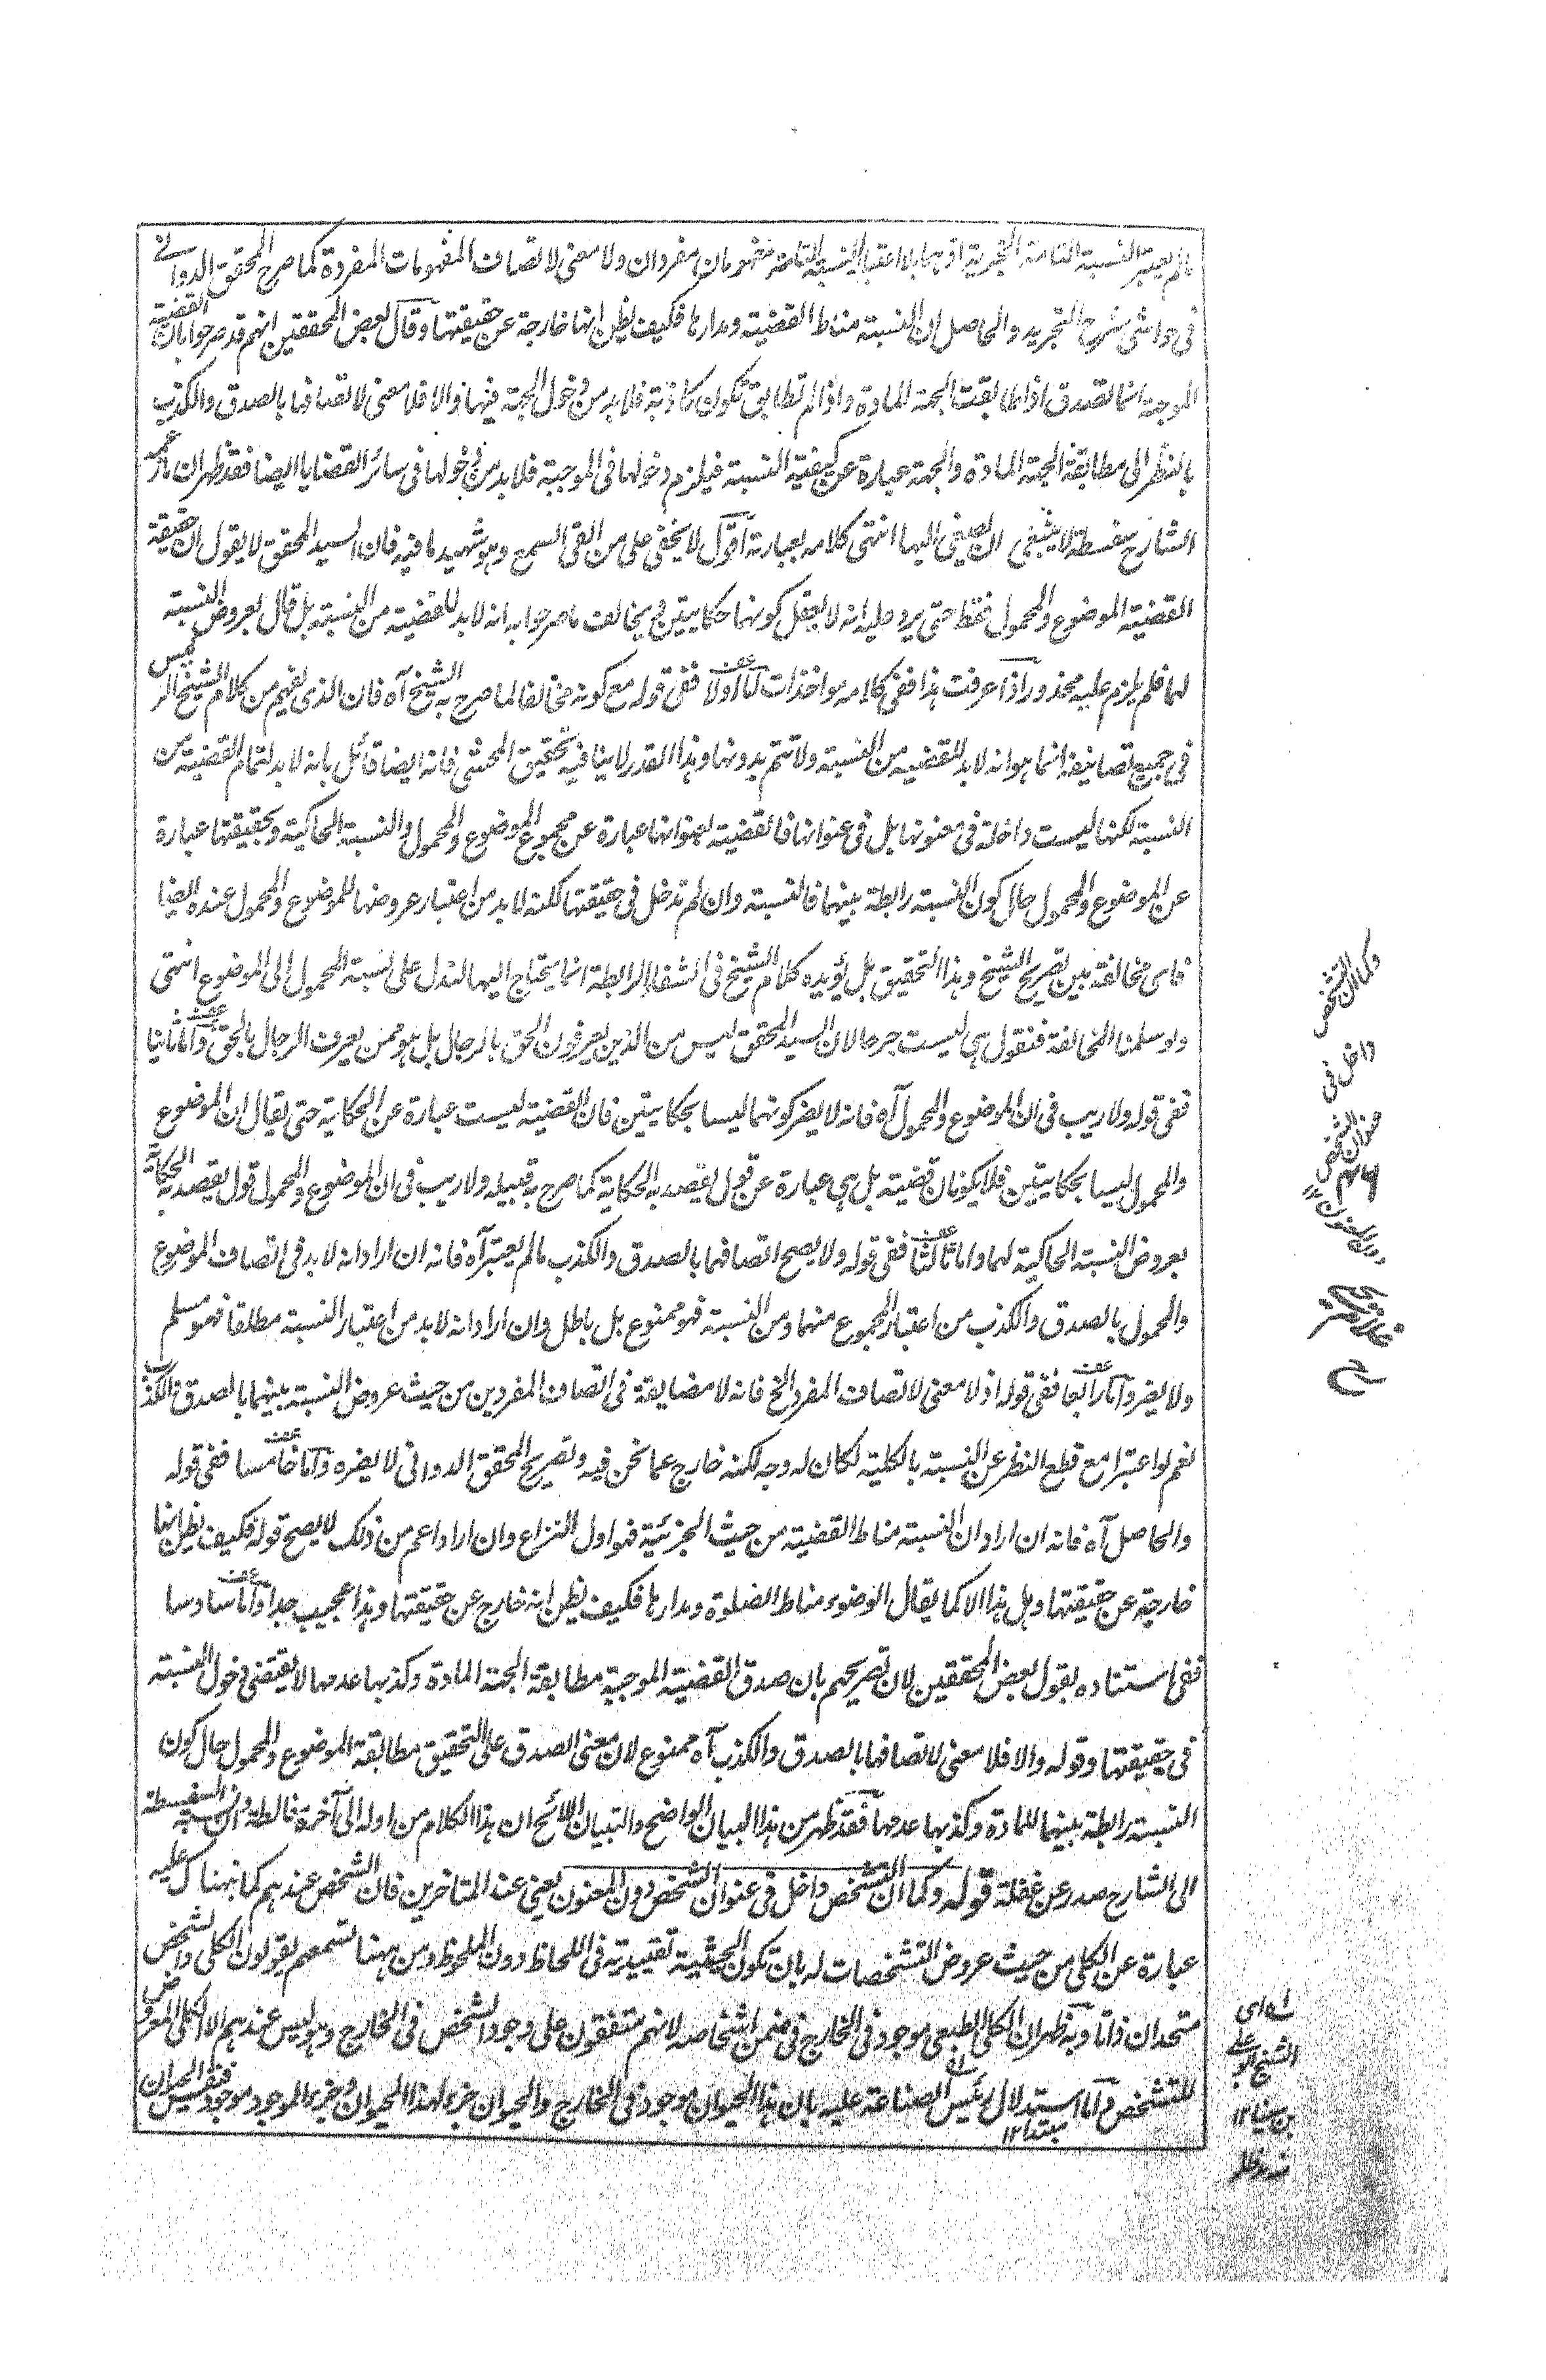 مالم يعتبر النسبة التامة الخبرية اذ هما بلا اعتبار النسبة التامة مفهومان مفردان ولا معنى لاتصاف المفهومات المفردة كما صرح المحقق الدوانے
فى حواشى شرح التجريد والحاصل ان النسبة مناط القضية ومدارها فكيف يظن انها خارجة عن حقيقتها وقال بعض المحققين انهم قد صرحوا بان القضية
الموجهة انما تصدق اذا طابقت الجهة المادة واذا لم تطابق تكون كاذبة فلابد من دخول الجهة فيها والا فلا معنى لاتصافها بالصدق والكذب
بالنظر الى مطابقة الجهة المادة والجهة عبارة عن كيفية النسبة فيلزم دخولها فى الموجهة فلابد من دخولها فى سائر القضايا ايضا فقد ظهر ان مازعمه
الشارح سفسطة لا ينبغى ان يصغى اليها انتهى كلامه بعبارته اقول لا يخفى على من القى السمع وهو شهيد ما فيه فان السيد المحقق لا يقول ان حقيقة
القضية الموضوع والمحمول فقط حتى يرد عليه انه لا يعقل كونهما حكايتين ويخالف ما صرحوا به انه لابد للقضية من النسبة بل قال بعروض النسبة
لهما فلم يلزم عليه محذور اذا عرفت هذا ففى كلامه مواخذات اما اولا ففى قوله مع كونه مخالفا لما صرح به الشيخ آه فان الذى يفهم من كلام الشيخ الرئيس
فى جميع تصانيفه انما هو انه لابد للقضية من النسبة ولا تتم بدونها وهذا القدر لا ينافيه تحقيق المحشى فانه ايضا قائل بانه لابد لتمام القضية من
النسبة لكنها ليست داخلة فى معنونها بل فى عنوانها فالقضية بعنوانها عبارة عن مجموع الموضوع والمحمول والنسبة الحاكية وبحقيقتها عبارة
عن الموضوع والمحمول حال كون النسبة رابطة بينهما فالنسبة وان لم تدخل فى حقيقتها لكنه لابد من اعتبار عروضها للموضوع والمحمول عنده ايضا
فاى مخالفة بين تصريح الشيخ وهذا التحقيق بل يؤيده كلام الشيخ فى الشفا الرابطة انما يحتاج اليها لتدل على نسبة المحمول الى الموضوع انتهى
ولو سلمنا المخالفة فنقول هى ليست جرحا لان السيد المحقق ليس من الذين يعرفون الحق بالرجال بل هو ممن يعرف الرجال بالحق واما ثانيا
ففى قوله ولا ريب فى ان الموضوع والمحمول آه فانه لا يضر كونهما ليسا بحكايتين فان القضية ليست عبارة عن الحكاية حتى يقال ان الموضوع
والمحمول ليسا بحكايتين فلا يكونان قضية بل هى عبارة عن قول يقصد به الحكاية كما صرح به قبيله ولا ريب فى ان الموضوع والمحمول قول يقصد به الحكاية
بعروض النسبة الحاكية لهما واما ثالثا ففى قوله ولا يصح اتصافهما بالصدق والكذب مالم يعتبر آه فانه ان اراد انه لابد فى اتصاف الموضوع
والمحمول بالصدق والكذب من اعتبار المجموع منهما ومن النسبة فهو ممنوع بل باطل وان اراد انه لابد من اعتبار النسبة مطلقا فهو مسلم
ولا يضر واما رابعا ففى قوله اذ لا معنى لاتصاف المفرد الخ فانه لا مضايقة فى اتصاف المفردين من حيث عروض النسبة بينهما بالصدق والكذب
نعم لو اعتبرا مع قطع النظر عن النسبة بالكلية لكان له وجه لكنه خارج عما نحن فيه وتصريح المحقق الدوانى لا يضره واما خامسا ففى قوله
والحاصل آه فانه ان اراد ان النسبة مناط القضية من حيث الجزئية فهو اول النزاع وان اراد اعم من ذلك لا يصح قوله فكيف يظن انها
خارجة عن حقيقتها وهل هذا الا كما يقال الوضوء مناط الصلوة ومدارها فكيف يظن انه خارج عن حقيقتها وهذا عجيب جدا واما سادسا
ففى استناده بقول بعض المحققين لان تصريحهم بان صدق القضية الموجهة مطابقة الجهة المادة وكذبها عدمها لا يقتضى دخول النسبة
فى حقيقتها وقوله والا فلا معنى لاتصافها بالصدق والكذب آه ممنوع لان معنى الصدق على التحقيق مطابقة الموضوع والمحمول حال كون
النسبة رابطة بينهما للمادة وكذبها عدمها فقد ظهر من هذا البيان الواضح والتبيان اللائح ان هذا الكلام من اوله الى آخره غالطة وان نسبة السفسطة
الى الشارح صدر عن غفلة قوله وكما ان التشخص داخل فى عنوان الشخص دون المعنون يعنى عند المتاخرين فان الشخص عندهم كما نبهناك عليه
عبارة عن الكلى من حيث عروض التشخصات له بان تكون الحيثية تقييدية فى اللحاظ دون الملحوظ ومن ههنا تسمعهم يقولون الكلى والشخص
متحدان ذاتا وبه ظهر ان الكلى الطبعى موجود فى الخارج فى ضمن اشخاصه لانهم متفقون على وجود الشخص فى الخارج وهو ليس عندهم الا الكلى المعروض
للتشخص واما استدلال رئيس الصناعة عليه بان هذا الحيوان موجود فى الخارج والحيوان جزء لهذا الحيوان وجزء الموجود موجود ففيه ان
مبتدا ١٢
وكما ان التشخص
داخل فى
عنوان الشخص
دون المعنون ١٢
له اى
الشيخ ابو على
بن سينا ١٢
منه مد ظله